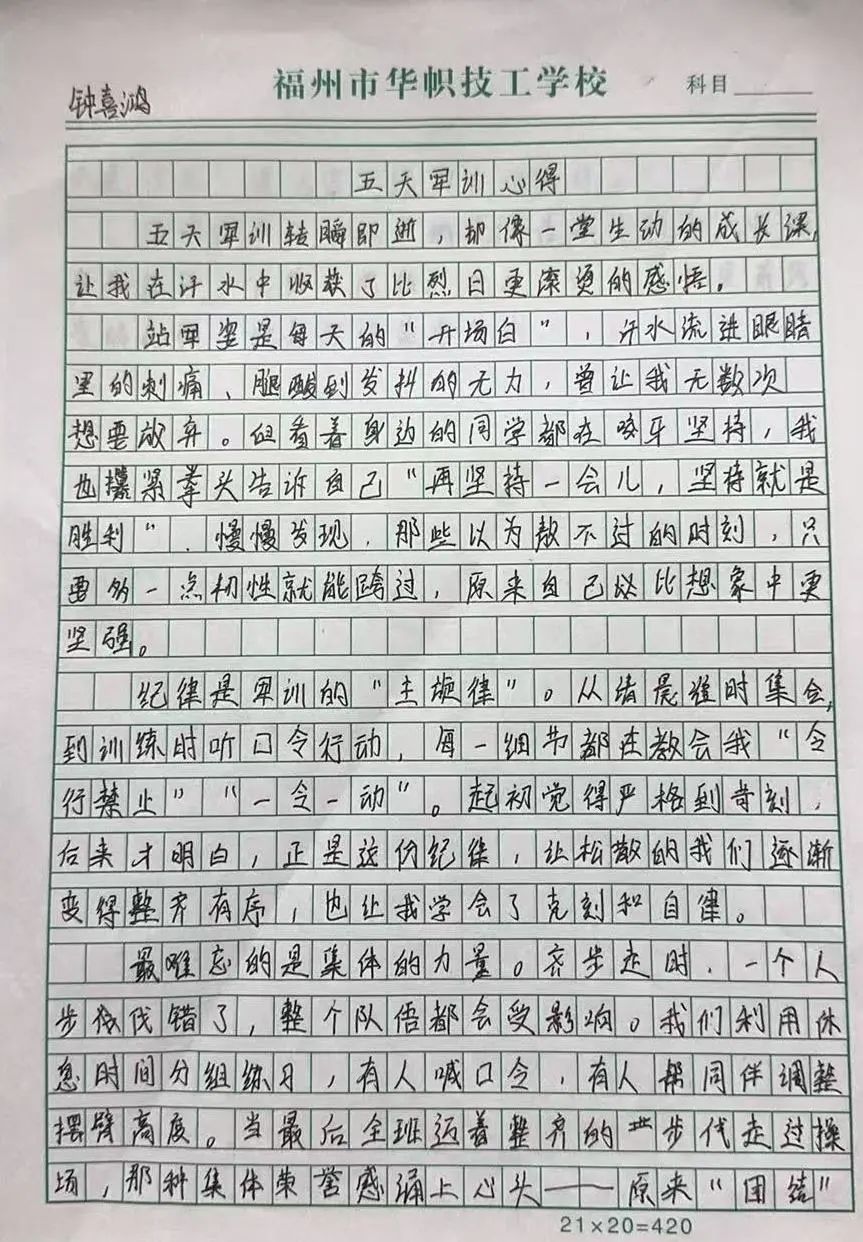 福州市华帜技工学校 科目
钟喜鸿
五天军训心得
五天军训转瞬即逝，却像一堂生动的成长课，
让我在汗水中收获了比烈日更滚烫的感悟。
站军姿是每天的“开场白”，汗水流进眼睛
里的刺痛、腿酸到发抖的无力，曾让我无数次
想要放弃。但看着身边的同学都在咬牙坚持，我
也攥紧拳头告诉自己“再坚持一会儿，坚持就是
胜利”．慢慢发现，那些以为熬不过的时刻，只
要多一点韧性就能跨过，原来自己比想象中更
坚强。
纪律是军训的“主旋律”。从清晨准时集合，
到训练时听口令行动，每一细节都在教会我“令
行禁止”“一令一动”。起初觉得严格到苛刻，
后来才明白，正是这份纪律，让松散的我们逐渐
变得整齐有序，也让我学会了克刻和自律。
最难忘的是集体的力量。齐步走时．一个人
步伐错了，整个队伍都会受影响。我们利用休
息时间分组练习，有人喊口令，有人帮同伴调整
摆臂高度。当最后全班迈着整齐的步伐走过操
场，那种集体荣誉感涌上心头——原来“团结”
21×20=420